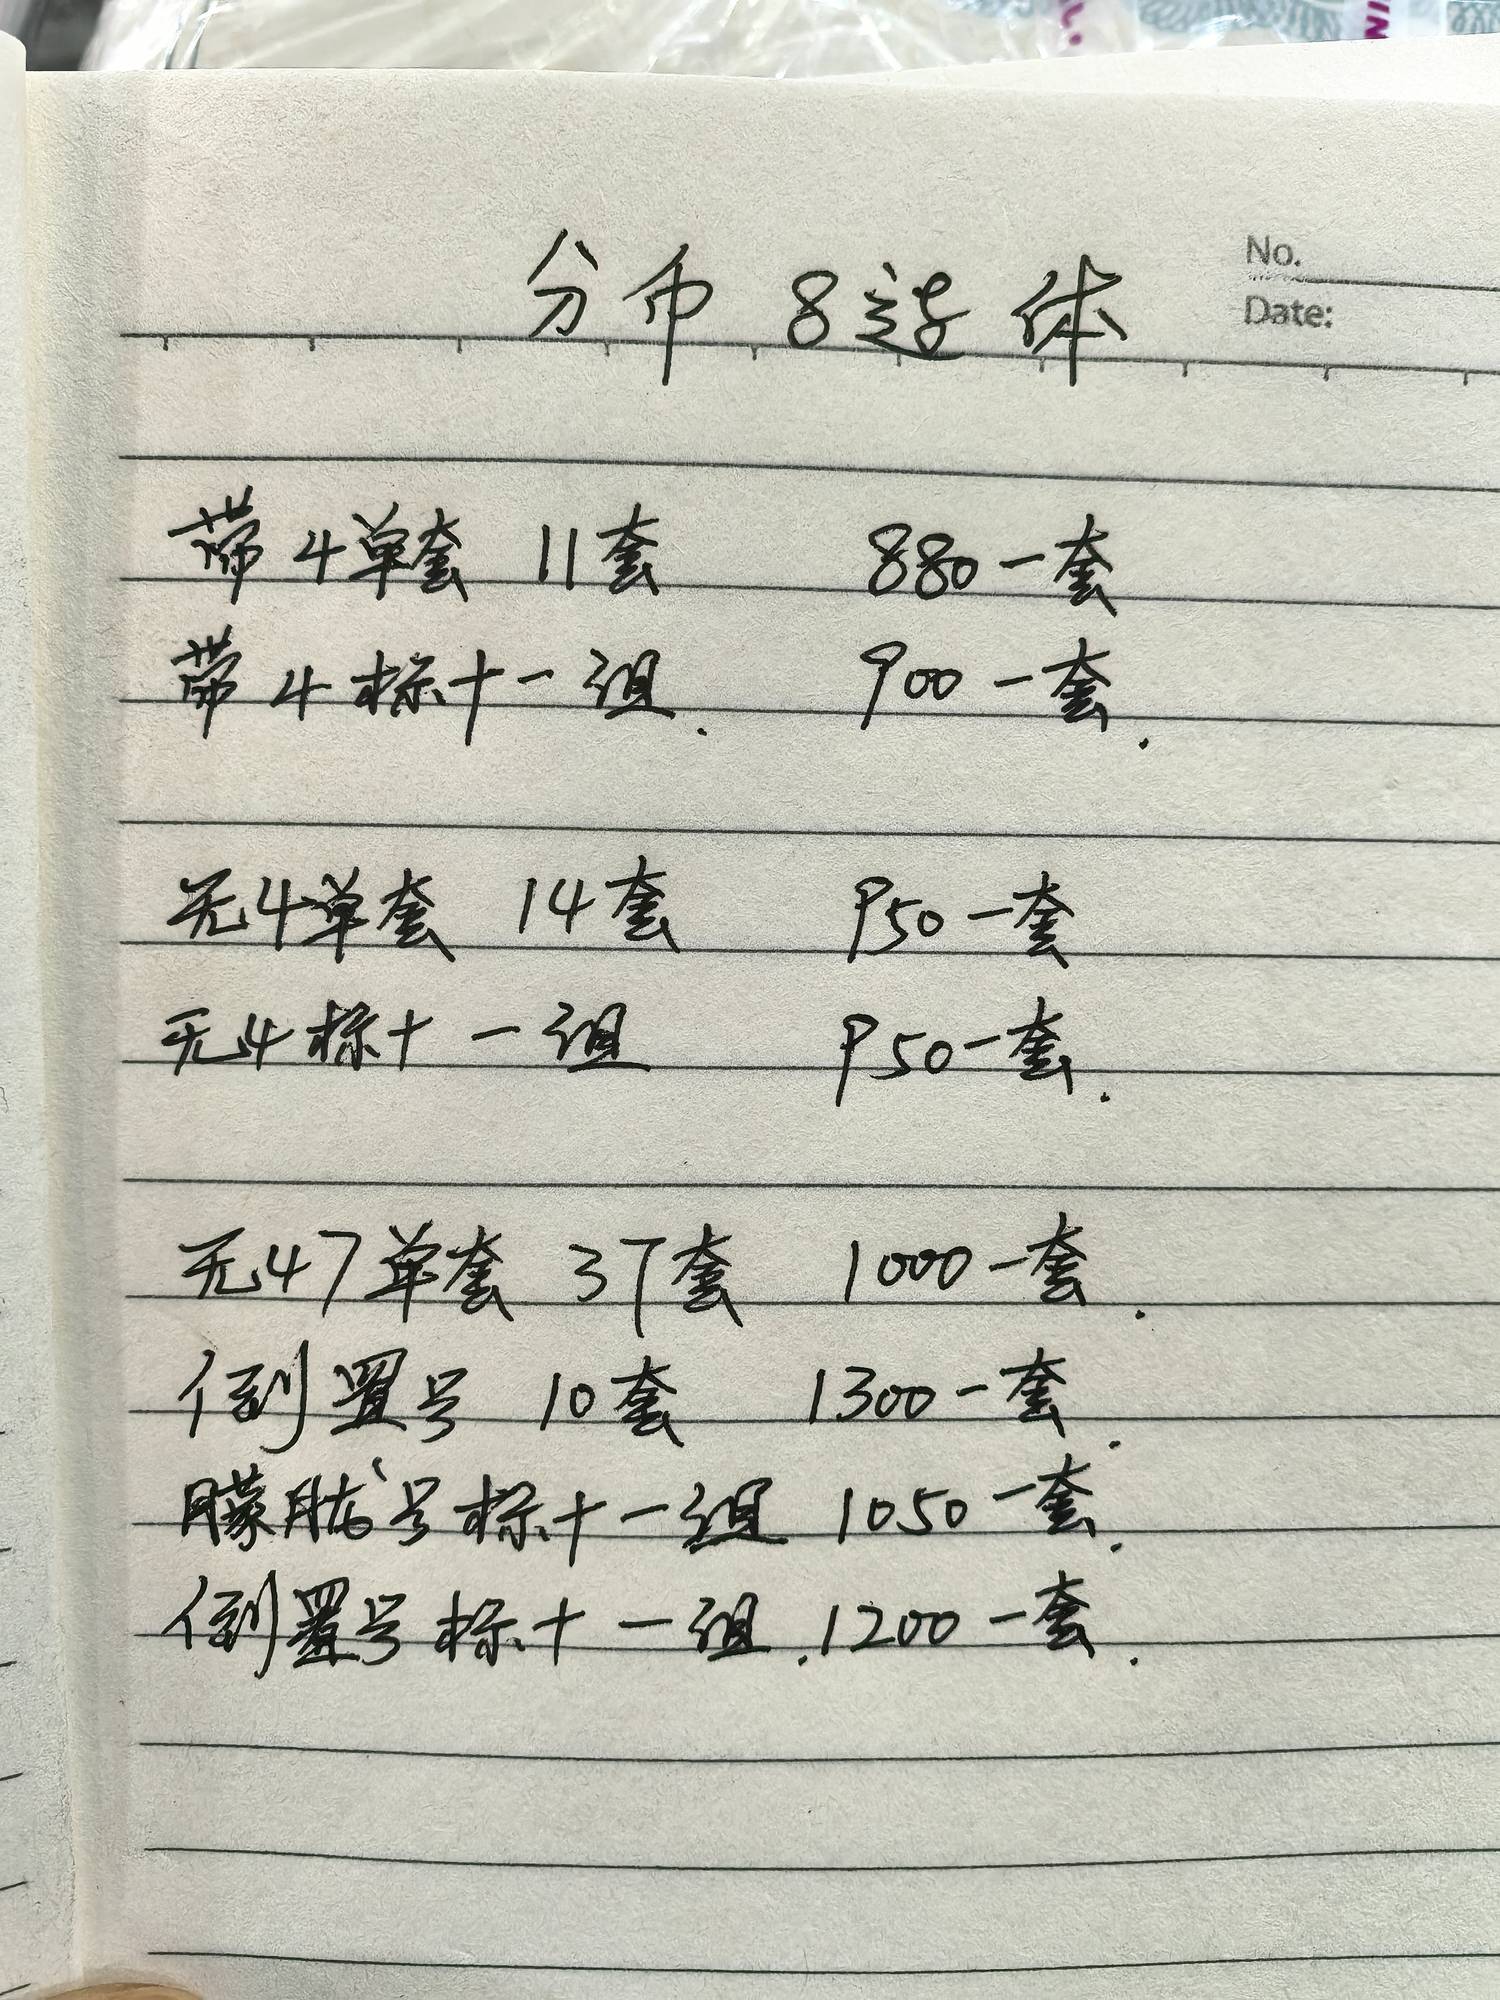 No.
Date:
分币 8连体
带4单套 11套 880一套
带4标十一组. 900一套.
无4单套 14套 950一套
无4标十一组 950一套.
无47单套 37套 1000一套.
倒置号 10套 1300一套.
朦胧号标十一组 1050一套.
倒置号标十一组. 1200一套.